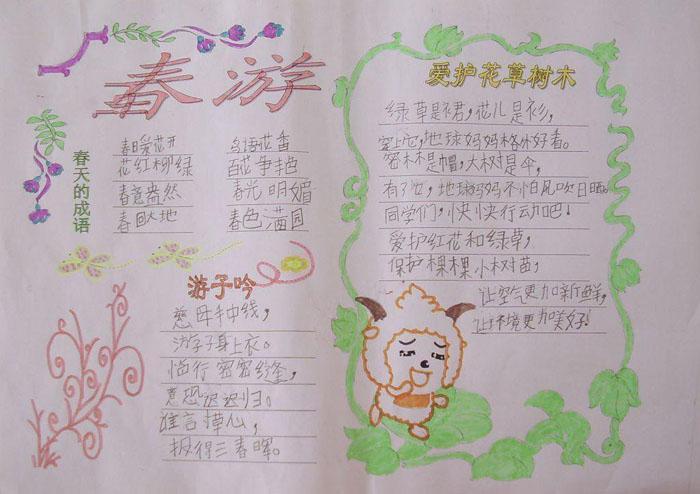 春游
春天的成语
春暖花开 鸟语花香
花红柳绿 百花争艳
春意盎然 春光明媚
春回大地 春色满园
游子吟
慈母手中线，
游子身上衣。
临行密密缝，
意恐迟迟归。
谁言 心，
报得三春晖。
爱护花草树木
绿草是裙，花儿是衫，
穿上它，地球妈妈格外好看。
密林是帽，大树是伞，
有了它，地球妈妈不怕风吹日晒。
同学们，快快行动吧！
爱护红花和绿草，
保护棵棵小树苗，
让空气更加新鲜，
让环境更加美好！